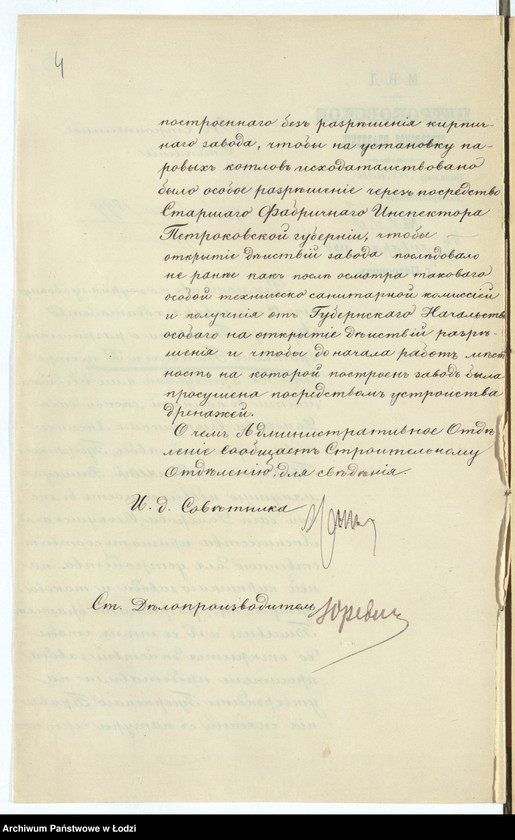 4
построеннаго безъ разрѣшенія кирпич-
наго завода, чтобы на установку па-
ровыхъ котловъ исходатайствовано
было особое разрѣшеніе черезъ посредство
Старшаго Фабричнаго Инспектора
Петроковской губерніи, чтобы
открытіе дѣйствій завода послѣдовало
не ранѣе какъ послѣ осмотра таковаго
особой техническо санитарной комиссіей
и полученія отъ Губернскаго Начальства
особаго на открытіе дѣйствій разрѣ-
шенія и чтобы до начала работъ мѣст-
ность на которой построенъ заводъ была
просушена посредствомъ устройства
дренажей.
О чемъ Административное Отдѣ-
леніе сообщаетъ Строительному
Отдѣленію для свѣдѣнія.
И. д. Совѣтника
Ст. Дѣлопроизводитель Юревичъ
Archiwum Państwowe w Łodzi